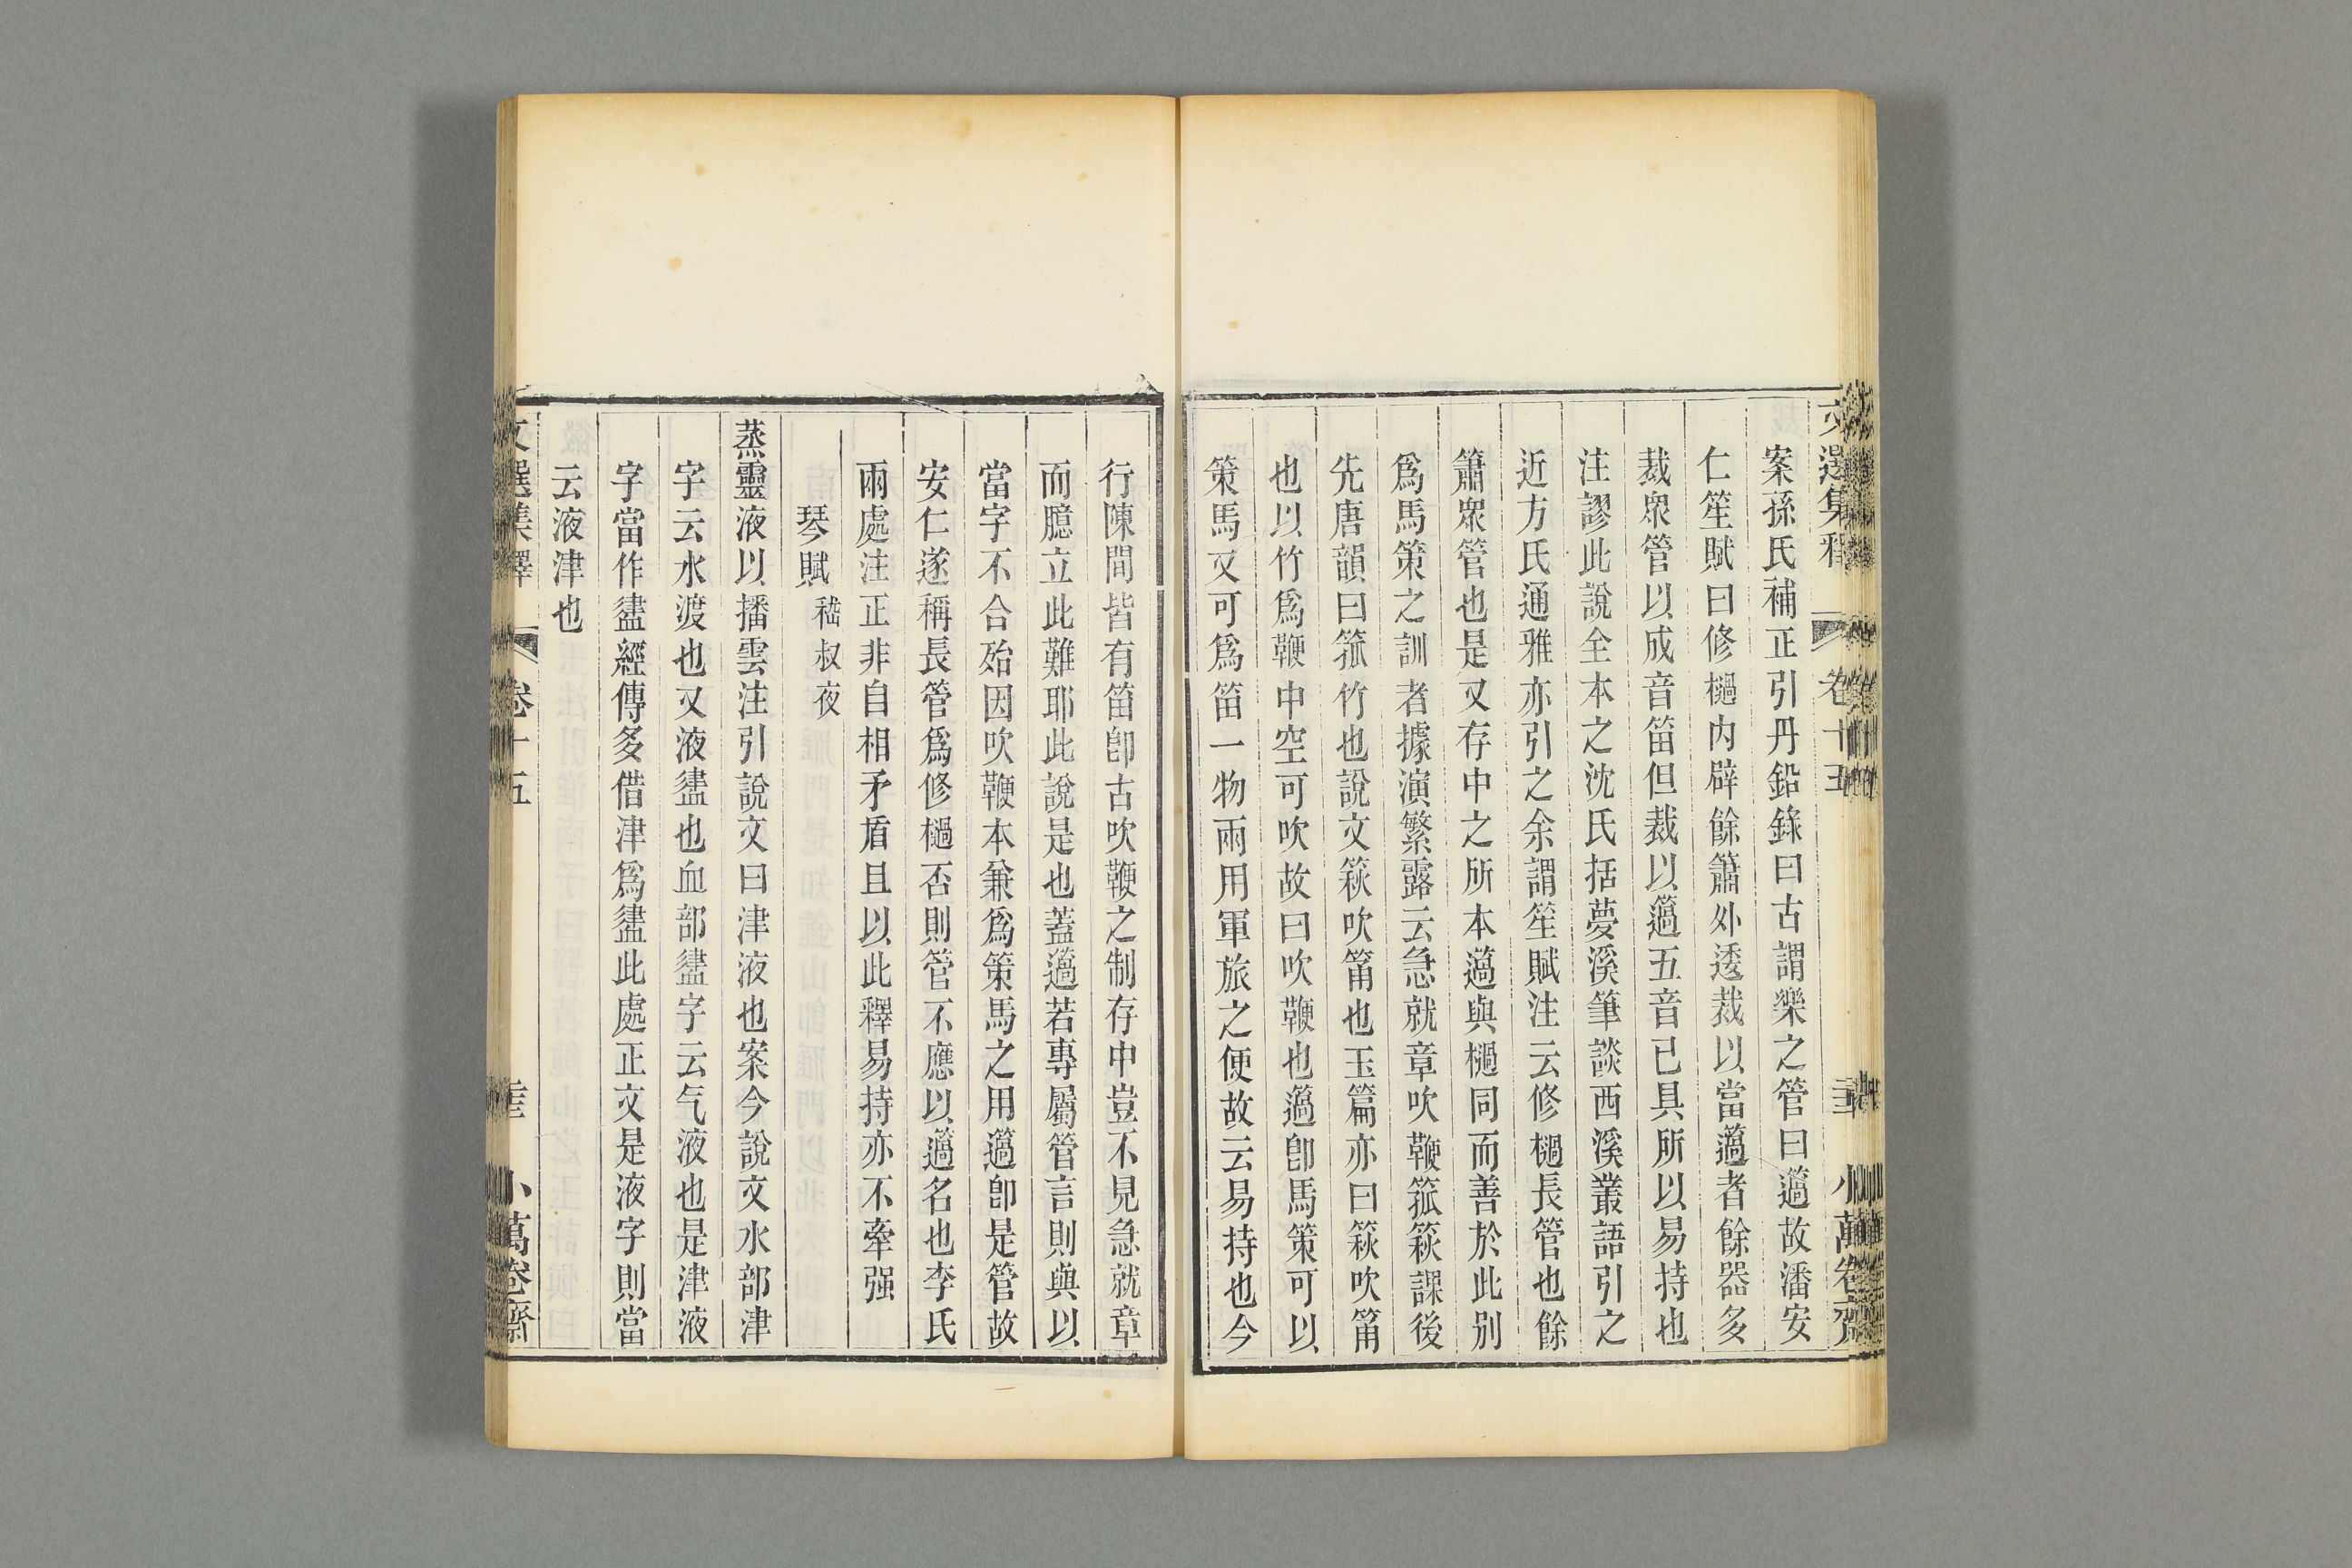 文選集釋 卷十五 小萬卷齋
案孫氏補正引丹鉛錄曰古謂樂之管曰簻故潘安
仁笙賦曰修檛內辟餘簫外逶裁以當簻者餘器多
裁衆管以成音笛但裁以簻五音已具所以易持也
注謬此說全本之沈氏括夢溪筆談西溪叢語引之
近方氏通雅亦引之余謂笙賦注云修檛長管也餘
簫衆管也是又存中之所本簻與檛同而善於此別
爲馬策之訓者據演繁露云急就章吹鞭箛篍課後
先唐韻曰箛竹也說文篍吹筩也玉篇亦曰篍吹筩
也以竹爲鞭中空可吹故曰吹鞭也簻卽馬策可以
策馬又可爲笛一物兩用軍旅之便故云易持也今
行陳間皆有笛卽古吹鞭之制存中豈不見急就章
而臆立此難耶此說是也蓋簻若專屬管言則與以
當字不合殆因吹鞭本兼爲策馬之用簻卽是管故
安仁遂稱長管爲修檛否則管不應以簻名也李氏
兩處注正非自相矛盾且以此釋易持亦不牽强
琴賦 嵇叔夜
蒸靈液以播雲注引說文曰津液也案今說文水部津
字云水渡也又液𧗁也血部𧗁字云气液也是津液
字當作𧗁經傳多借津爲𧗁此處正文是液字則當
云液津也
文選集釋 卷十五 小萬卷齋